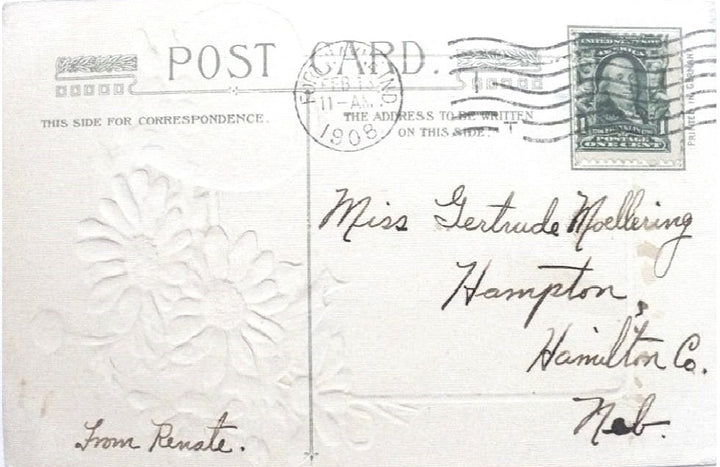 POST CARD.
THIS SIDE FOR CORRESPONDENCE.
THE ADDRESS TO BE WRITTEN
ON THIS SIDE.
FORT WAYNE, IND.
FEB 13
11-AM
1908
UNITED STATES OF AMERICA
FRANKLIN
1 POSTAGE 1
ONE CENT
PRINTED IN GERMANY
Miss Gertrude Moellering
Hampton,
Hamilton Co.
Neb.
From Renate.